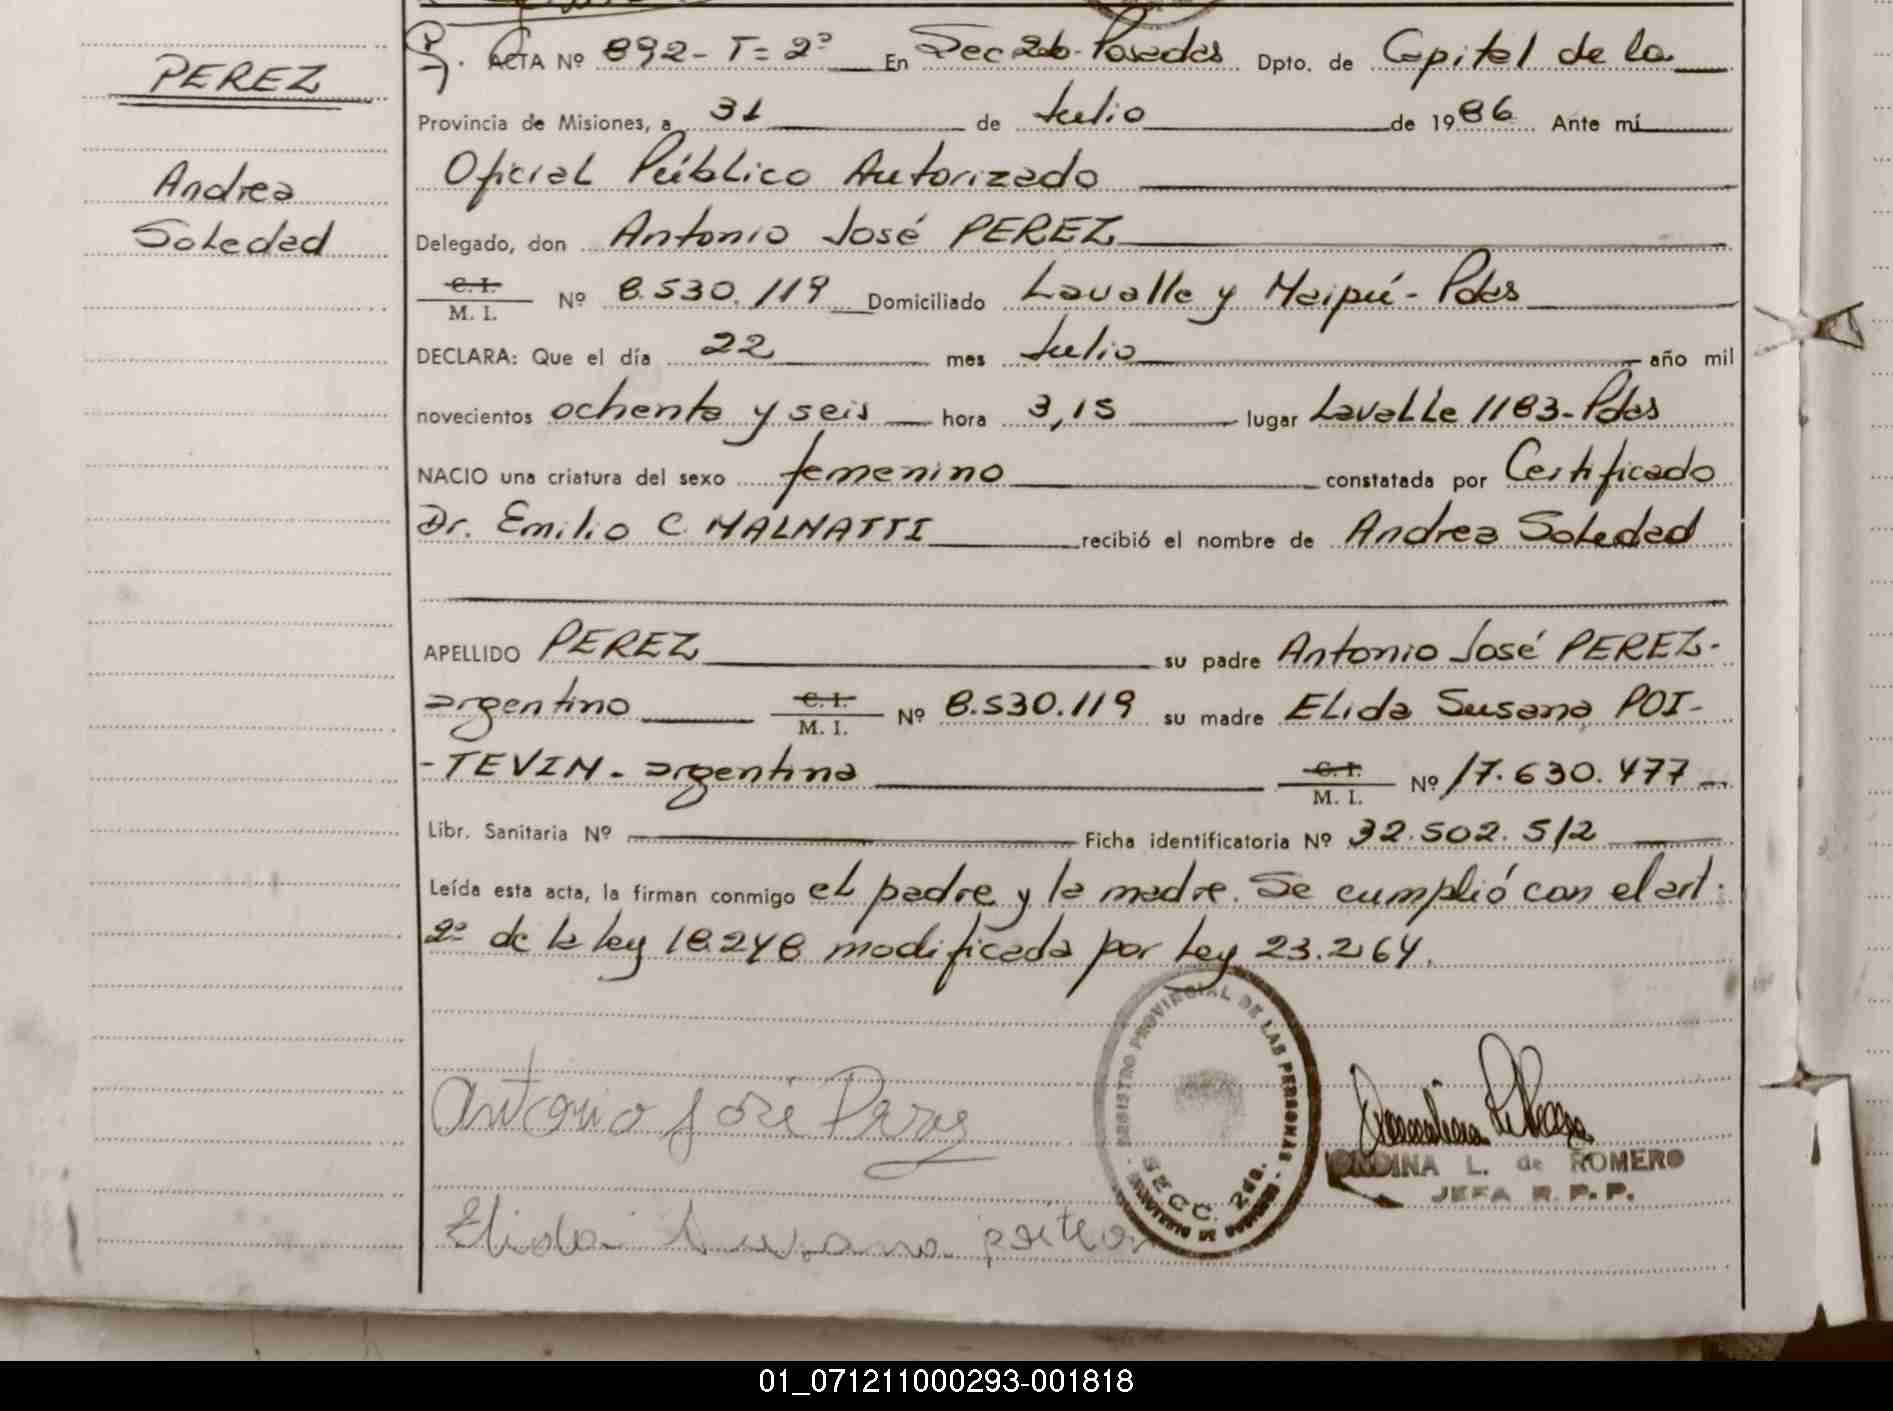 PEREZ
Andrea
Soledad
ACTA Nº 892- T= 2º En Sec 2b-Posadas Dpto. de Capital de la
Provincia de Misiones, a 31 de Julio de 1986 Ante mí
Oficial Público Autorizado
Delegado, don Antonio José PEREZ
C. I. M. I. Nº 8.530.119 Domiciliado Lavalle y Maipú- Pdas
DECLARA: Que el día 22 mes Julio año mil
novecientos ochenta y seis hora 3,15 lugar Lavalle 1183-Pdas
NACIO una criatura del sexo femenino constatada por Certificado
Dr. Emilio C. MALMATTI recibió el nombre de Andrea Soledad
APELLIDO PEREZ su padre Antonio José PEREZ-
argentino C. I. M. I. Nº 8.530.119 su madre Elida Susana POI-
-TEVIN- argentina C. I. M. I. Nº 17.630.477
Libr. Sanitaria Nº Ficha identificatoria Nº 32.502.512
Leída esta acta, la firman conmigo el padre y la madre. Se cumplió con el art.
2º de la ley 18.248 modificada por Ley 23.264.
Antonio José Perez
Elida Susana
REGISTRO PROVINCIAL DE LAS PERSONAS
SECC. 2da.
L. de ROMERO
JEFA R. P. P.
01_071211000293-001818